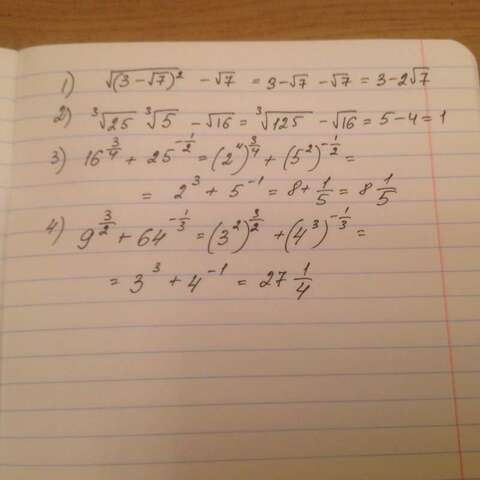 1) √(3 − √7)² − √7 = 3 − √7 − √7 = 3 − 2√7
2) ³√25 ³√5 − √16 = ³√125 − √16 = 5 − 4 = 1
3) 16^(3/4) + 25^(−1/2) = (2⁴)^(3/4) + (5²)^(−1/2) =
= 2³ + 5⁻¹ = 8 + 1/5 = 8 1/5
4) 9^(3/2) + 64^(−1/3) = (3²)^(3/2) + (4³)^(−1/3) =
= 3³ + 4⁻¹ = 27 1/4